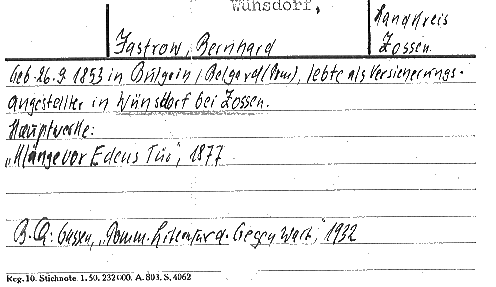 Wünsdorf,
Landkreis
Zossen.
Jastrow, Bernhard
Geb. 26.9.1853 in Bulgrin (Belgard (Pom), lebte als Versicherungs-
angestellter in Wünsdorf bei Zossen.
Hauptwerke:
„Klänge vor Edens Tür", 1877
B.Q: Gassen, „Pomm. Literatur d. Gegenwart", 1932
Reg. 10. Stichnote. 1. 50. 232000. A. 803. S. 4062